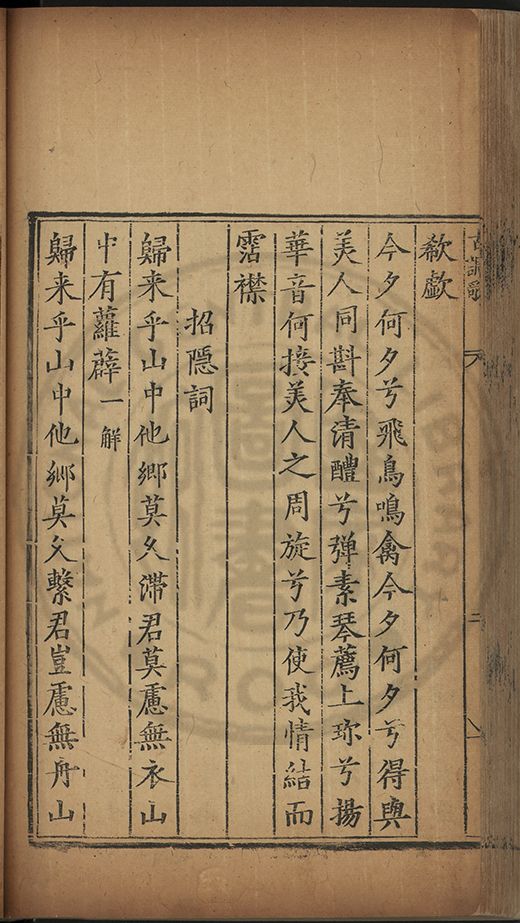 欷歔
今夕何夕兮飛鳥鳴禽今夕何夕兮得與
美人同斟奉清醴兮彈素琴薦上珎兮揚
華音何接美人之周旋兮乃使我情結而
霑襟
招隱詞
歸来乎山中他鄉莫久滯君莫慮無衣山
中有蘿薜一解
歸来乎山中他鄉莫久繫君豈慮無舟山